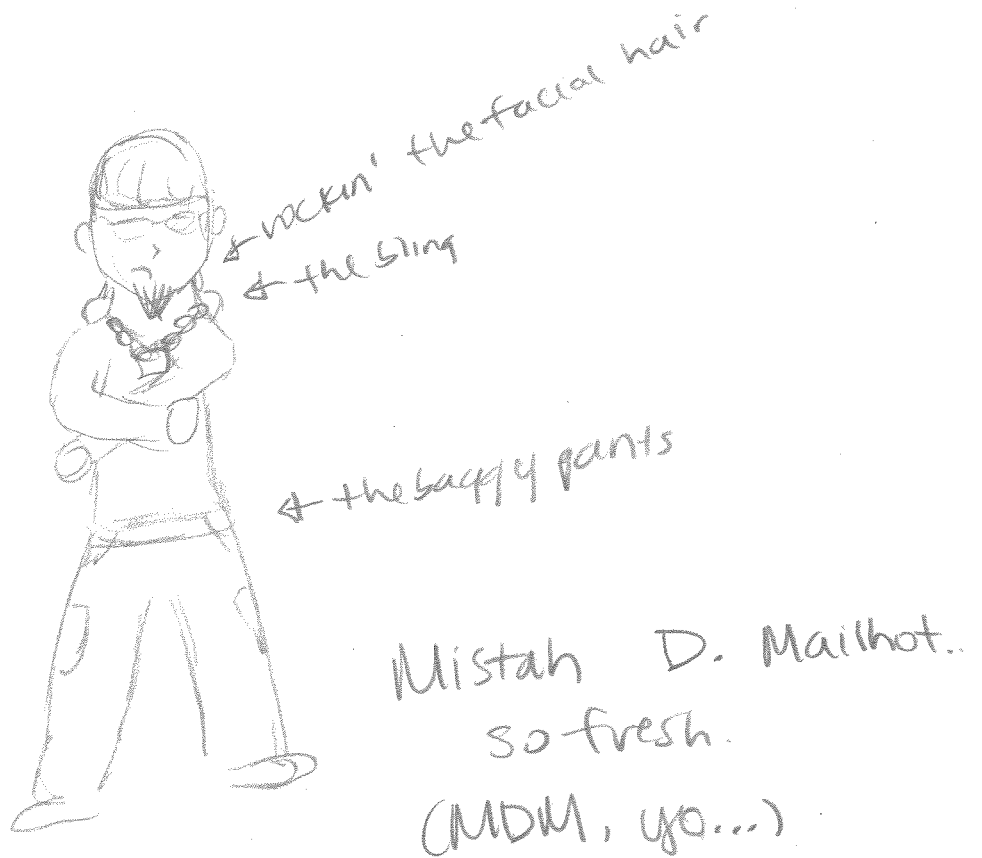 rockin' the facial hair
the bling
the baggy pants
Mistah D. Mailhot..
so fresh.
(MDM, yo...)